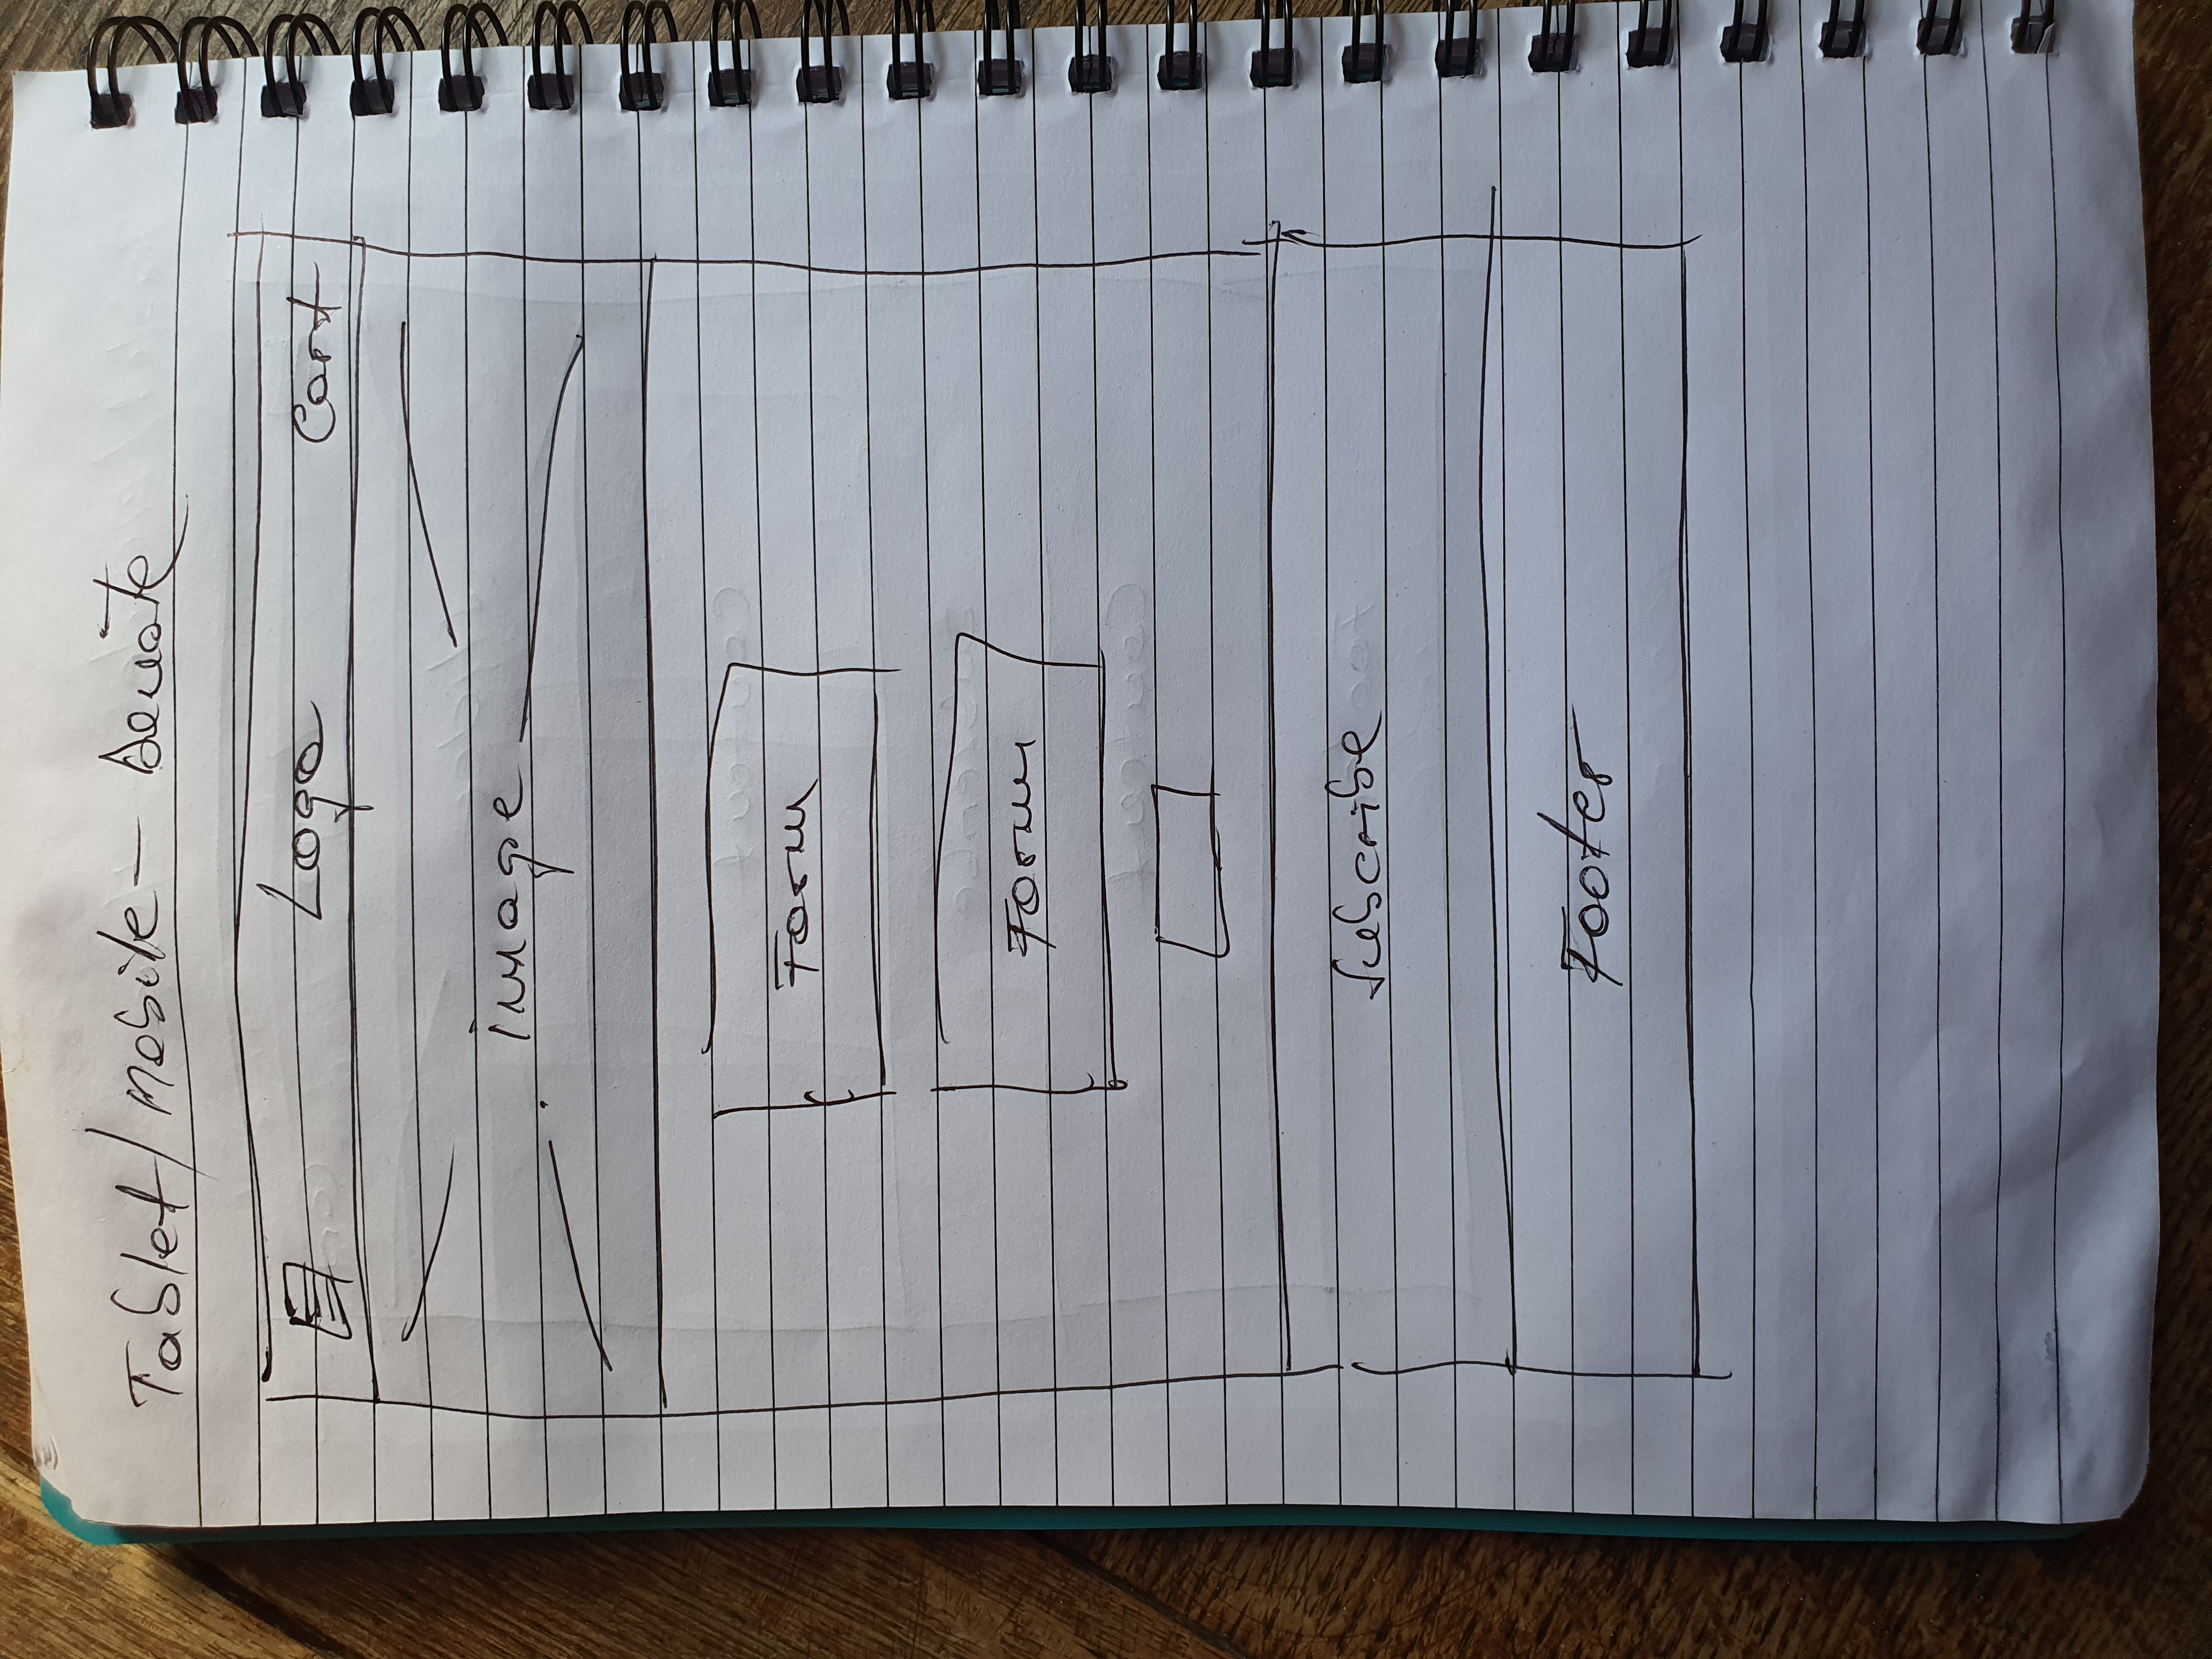 Tablet/mobile - Donate
Logo Cart
image
Form
Form
Subscribe
Footer